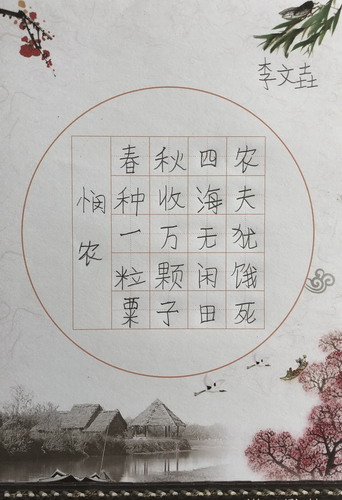 悯农
春种一粒粟
秋收万颗子
四海无闲田
农夫犹饿死
李文垚